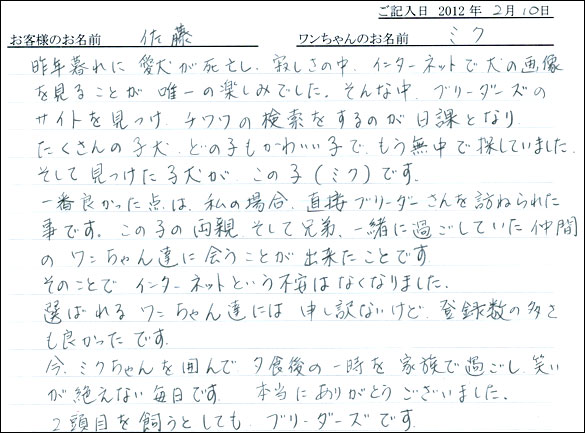 ご記入日 2012年 2月10日
お客様のお名前 佐藤 ワンちゃんのお名前 ミク
昨年暮れに 愛犬が死亡し、寂しさの中、インターネットで犬の画像
を見ることが 唯一の楽しみでした。そんな中、ブリーダーズの
サイトを見つけ、チワワの検索をするのが日課となり、
たくさんの子犬、どの子もかわいい子で、もう無中で探していました。
そして見つけた子犬が、この子(ミク)です。
一番良かった点は、私の場合、直接ブリーダーさんを訪ねられた
事です。この子の両親 そして兄弟、一緒に過ごしていた仲間
の ワンちゃん達に会うことが出来たことです
そのことで インターネットという不安はなくなりました。
選ばれる ワンちゃん達には 申し訳ないけど、登録数の多さ
も良かったです。
今、ミクちゃんを囲んで 夕食後の一時を 家族で過ごし、笑い
が絶えない毎日です 本当にありがとうございました。
2頭目を飼うとしても、ブリーダーズです。